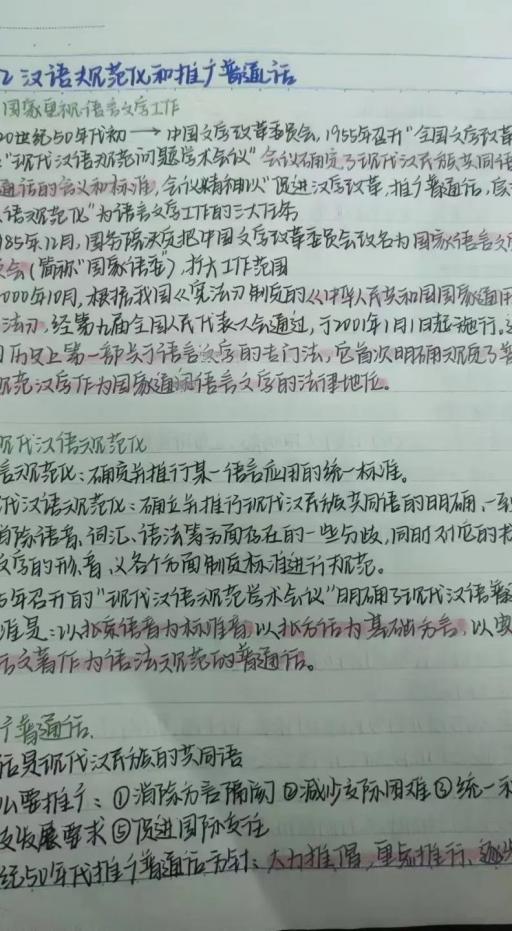 2 汉语规范化和推广普通话
国家重视语言文字工作
20世纪50年代初 → 中国文字改革委员会, 1955年召开“全国文字改革
“现代汉语规范问题学术会议” 会议确定了现代汉民族共同语
通话的含义和标准, 会议精神以“促进汉字改革, 推广普通话, 实
语规范化”为语言文字工作的三大任务
985年12月, 国务院决定把中国文字改革委员会改名为国家语言文字
员会(简称“国家语委”), 扩大工作范围
000年10月, 根据我国《宪法》制定的《中华人民共和国国家通用
法》, 经第九届全国人民代表大会通过, 于2001年1月1日起施行。这
历史上第一部关于语言文字的专门法, 它首次明确规定了普
规范汉字作为国家通用语言文字的法律地位。
现代汉语规范化
言规范化: 确定并推行某一语言应用的统一标准。
代汉语规范化: 确立并推行现代汉民族共同语的明确、一致
消除语音、词汇、语法等方面存在的一些分歧, 同时对它的书
文字的形、音、义各个方面制定标准进行规范。
5年召开的“现代汉语规范学术会议”明确了现代汉语普通
准是: 以北京语音为标准音, 以北方话为基础方言, 以典
话文著作为语法规范的普通话。
广普通话.
话是现代汉民族的共同语
么要推广: ①消除方言隔阂 ②减少交际困难 ③统一
及发展要求 ⑤促进国际交往
纪50年代推广普通话方针: 大力推倡, 重点推行、逐步